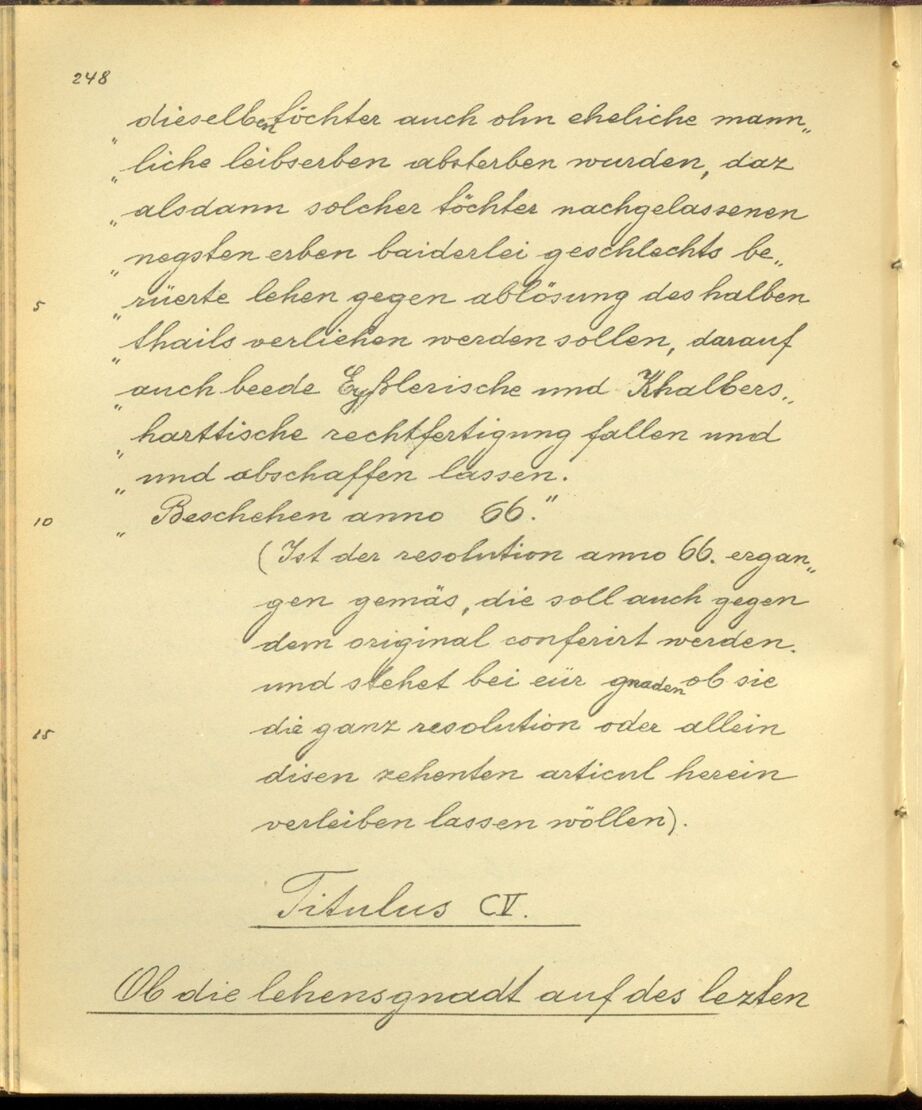 248
dieselben töchter auch ohn eheliche mann„
„ liche leibserben absterben wurden, daz
„ alsdann solcher töchter nachgelassenen
„ negsten erben baiderlei geschlechts be„
5 „ rüerte lehen gegen ablösung des halben
„ thails verliehen werden sollen, darauf
„ auch beede Eyßlerische und Khalbers„
„ harttische rechtfertigung fallen und
„ und abschaffen lassen.
10 „ Beschehen anno 66."
(Ist der resolution anno 66. ergan„
gen gemäs, die soll auch gegen
dem original conferirt werden.
und stehet bei eür gnaden ob sie
15 die ganz resolution oder allein
disen zehenten articul herein
verleiben lassen wöllen).
Titulus CV.
Ob die lehensgnadt auf des lezten